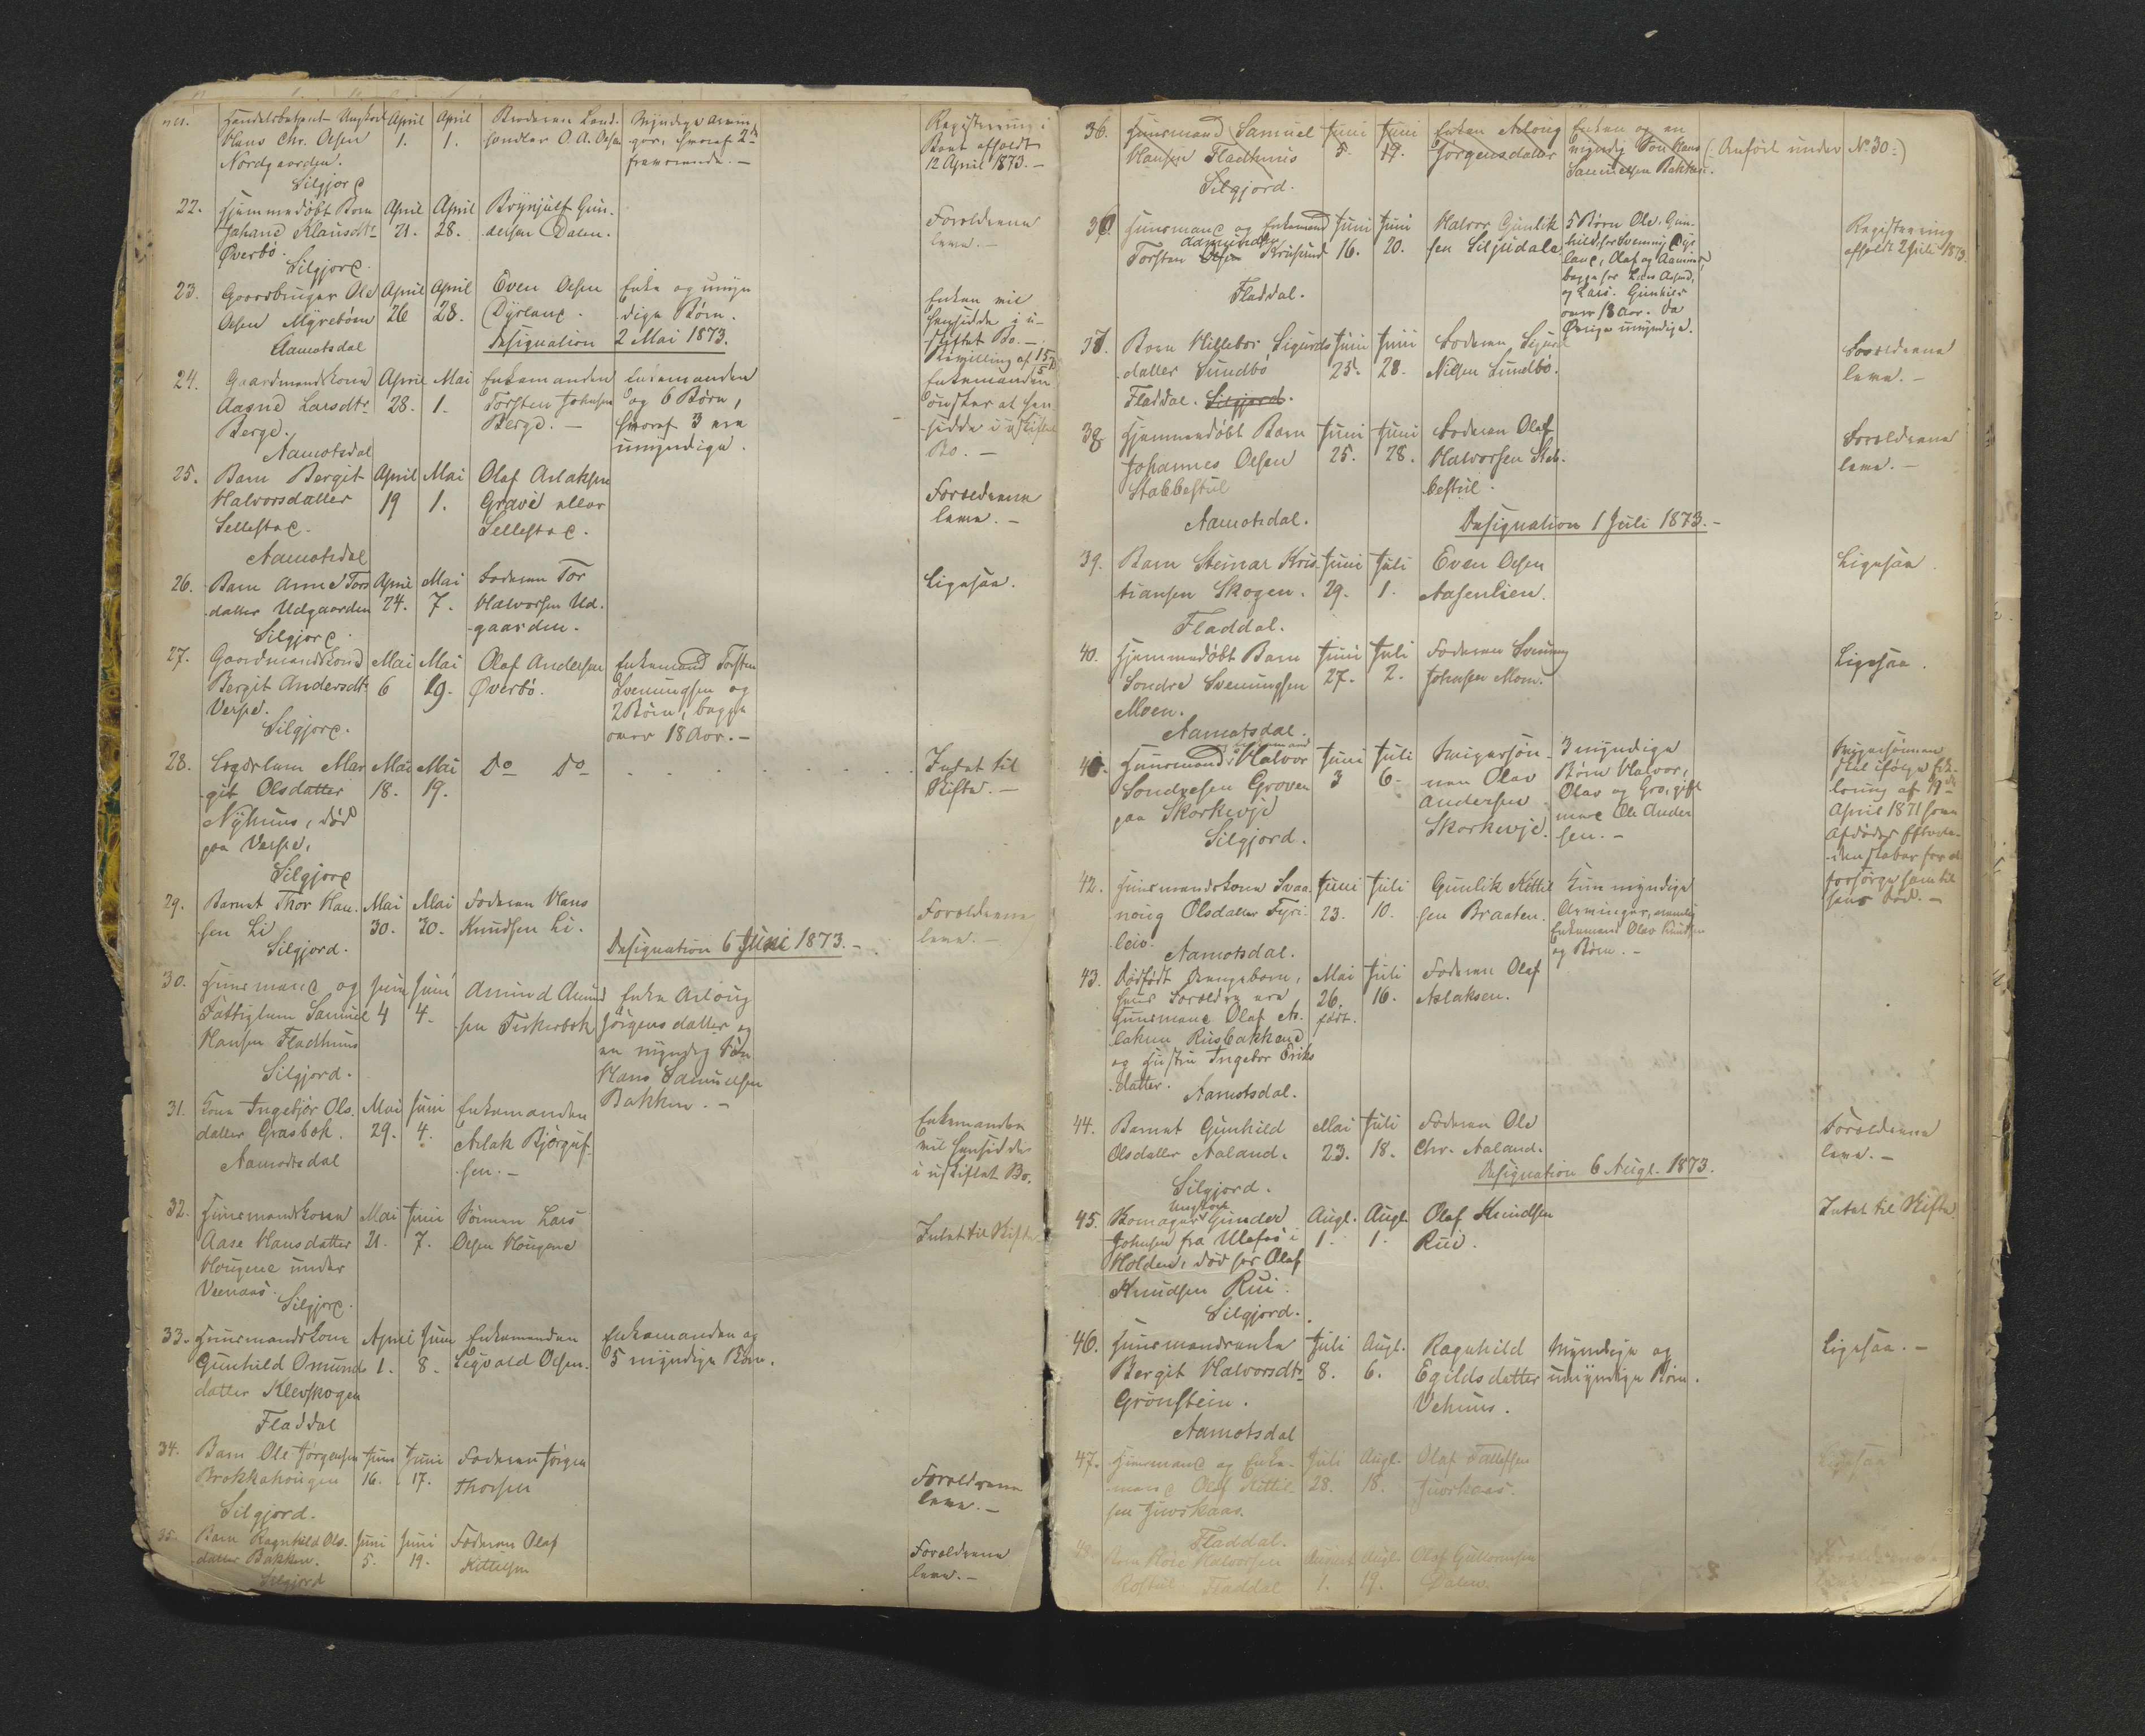 Handelsbetjent Ungkarl April April Broderen Land- Myndige Arvin- Registrering i
Hans Chr. Olsen 1. 1. handler O. A. Olsen ger, hvoraf 2de Boet afholdt
Nordgaarden. fraværende. — 12 April 1873. —
Silgjord
22. Hjemmedøbt Barn April April Brynjulf Gun- Forældrene
Johane Klausdtr 21. 28. dersen Dalen. leve. —
Øverbø.
Silgjord.
23. Gaardbruger Ole April April Even Olsen Enke og umyn- Enken vil
Olsen Myrebøen 26 28. Dyrland. dige Børn. hensidde i u-
Aamotsdal Designation 2 Mai 1873. skiftet Bo. —
Bevilling af 15/5
24. Gaardmandskone April Mai Enkemanden Enkemanden Enkemanden
Aasne Larsdtr 28. 1. Torsten Johnsen og 6 Børn, ønsker at hen-
Berge. Berge. — hvoraf 3 ere sidde i uskiftet
Aamotsdal umyndige. Bo. —
25. Barn Bergit April Mai Olaf Aslaksen
Halvorsdatter 19 1. Gravé eller Forældrene
Sellestad. Sellestad. leve. —
Aamotsdal
26. Barn Anne Tors April Mai Faderen Tor Ligesaa.
datter Udgaarden 24. 7. Halvorsen Ud-
Silgjord. gaarden.
27. Gaardmandskone Mai Mai Olaf Andersen Enkemand Torsten
Bergit Andersdtr 6 19. Øverbø. Sveningsen og
Verpe. 2 Børn, begge
Silgjord. over 18 Aar. —
28. Lægdslem Mar Mai Mai Do Do Intet til
git Olsdatter 18. 19. Skifte. —
Nyhuus, død
paa Verpe,
Silgjord
29. Barnet Thor Han- Mai Mai Faderen Hans Forældrene
sen Li 30. 30. Knudsen Li. leve. —
Silgjord. Designation 6 Juni 1873. —
30. Huusmand og Juni Juni Amund Amund Enke Aslaug
Fattiglem Samuel 4 4. sen Fiskerbek Jørgensdatter og
Hansen Fladhuus en myndig Søn
Silgjord. Hans Samuelsen
Bakken. —
31. Kone Ingebjør Ols- Mai Juni Enkemanden Enkemanden
datter Grasbek. 29. 4. Aslak Bjørguf- vil hensidde
Aamotsdal sen. — i uskiftet Bo.
32. Huusmandskone Mai Juni Sønnen Lars Intet til Skifte
Aase Hansdatter 21. 7. Olsen Hougene
Hougene under
Vernaas.
Silgjord.
33. Huusmandskone April Juni Enkemanden Enkemanden og
Gunhild Omunds 1. 8. Sigvald Olsen. 5 myndige Børn.
datter Klevskogen
Fladdal
34. Barn Ole Jørgensen Juni Juni Faderen Jørgen Forældrene
Brokkehougen 16. 17. Thorsen leve. —
Silgjord.
35. Barn Ragnhild Ols- Juni Juni Faderen Olaf Forældrene
datter Bakken. 5. 19. Kittelsen leve. —
Silgjord
36. Huusmand Samuel Juni Juni Enken Aslaug Enken og en
Hansen Fladhuus 5. 19. Jørgensdatter myndig Søn Hans (Anført under No 30.)
Silgjord. Samuelsen Bakken.
36. Huusmand og Enkemand Juni Juni Halvor Gunlik 5 Børn Ole. Gun- Registrering
Torsten Olsen Aamundsen 16. 20. sen Siljudale. hild, Svening Dyr afholdt 2 Juli 1873.
Fladdal. land, Olaf og Aamund,
begge
og Lars. Gunhild
over 18 Aar. De
Øvrige umyndige.
37. Barn Hillebor Sigurds Juni Juni Faderen Sigurd Forældrene
datter Sundbø 25. 28. Nilsen Sundbø. leve. —
Fladdal. Silgjord.
38. Hjemmedøbt Barn Juni Juni Faderen Olaf Forældrene
Johannes Olsen 25. 28. Halvorsen Stab- leve. —
Stabbestul bestul.
Aamotsdal. Designation 1 Juli 1873. —
39. Barn Steinar Kris- Juni Juli Even Olsen Ligesaa
tiansen Skogen. 29. 1. Aasenlien.
Fladdal.
40. Hjemmedøbt Barn Juni Juli Faderen Svening Ligesaa.
Sondre Sveningsen 27. 2. Johnsen Moen.
Moen.
Aamotsdal.
41. Huusmand Halvor Juni Juli Svigersøn- 3 myndige Svigersønnen
Sondresen Groven 3 6. nen Olav Børn Halvor, skal ifølge
paa Skorkevje Andersen Olav og Gro, gift
Silgjord. Skorkevje. med Ole Ander April 1871 have
sen. — Afdødes
42. Huusmandskone Svaa- Juni Juli Gunlik Kittil Kun myndige forsørge ham til
noug Olsdatter Fyri- 23. 10. sen Braaten. Arvinger, nemlig hans Død. —
leiv. Enkemand Olav Knudsen
Aamotsdal. og Børn. —
43. Dødfødt Drengebarn, Mai Juli Faderen Olaf
hvis Forældre ere 26. 16. Aslaksen.
Huusmand Olaf As- født.
laksen Ruisbakkene
og Hustru Ingebor Eriks
datter.
Aamotsdal.
44. Barnet Gunhild Mai Juli Faderen Ole Forældrene
Olsdatter Aaland. 23. 18. Chr. Aaland. leve. —
Silgjord. Designation 6 Augt. 1873.
45. Komager Ungkarl Gunder Augt. Augt. Olaf Knudsen Intet til Skifte
Johnsen fra Ulefos i 1. 1. Rui.
Holden, død hos Olaf
Knudsen Rui.
Silgjord.
46. Huusmandsenke Juli Augt. Ragnhild Myndige og Ligesaa. —
Bergit Halvorsdtr 8. 6. Egildsdatter umyndige Børn.
Grønstein. Vehuus.
Aamotsdal
47. Huusmand og Enke- Juli Augt. Olaf Tallefsen Ligesaa
mand Olaf Kittil- 28. 18. Juvskaas.
sen Juvskaas.
Fladdal.
48. Barn Halvorsen August Augt. Olaf Guttormsen Forældrene
Rostul Fladdal 1. 19. Dalen. leve